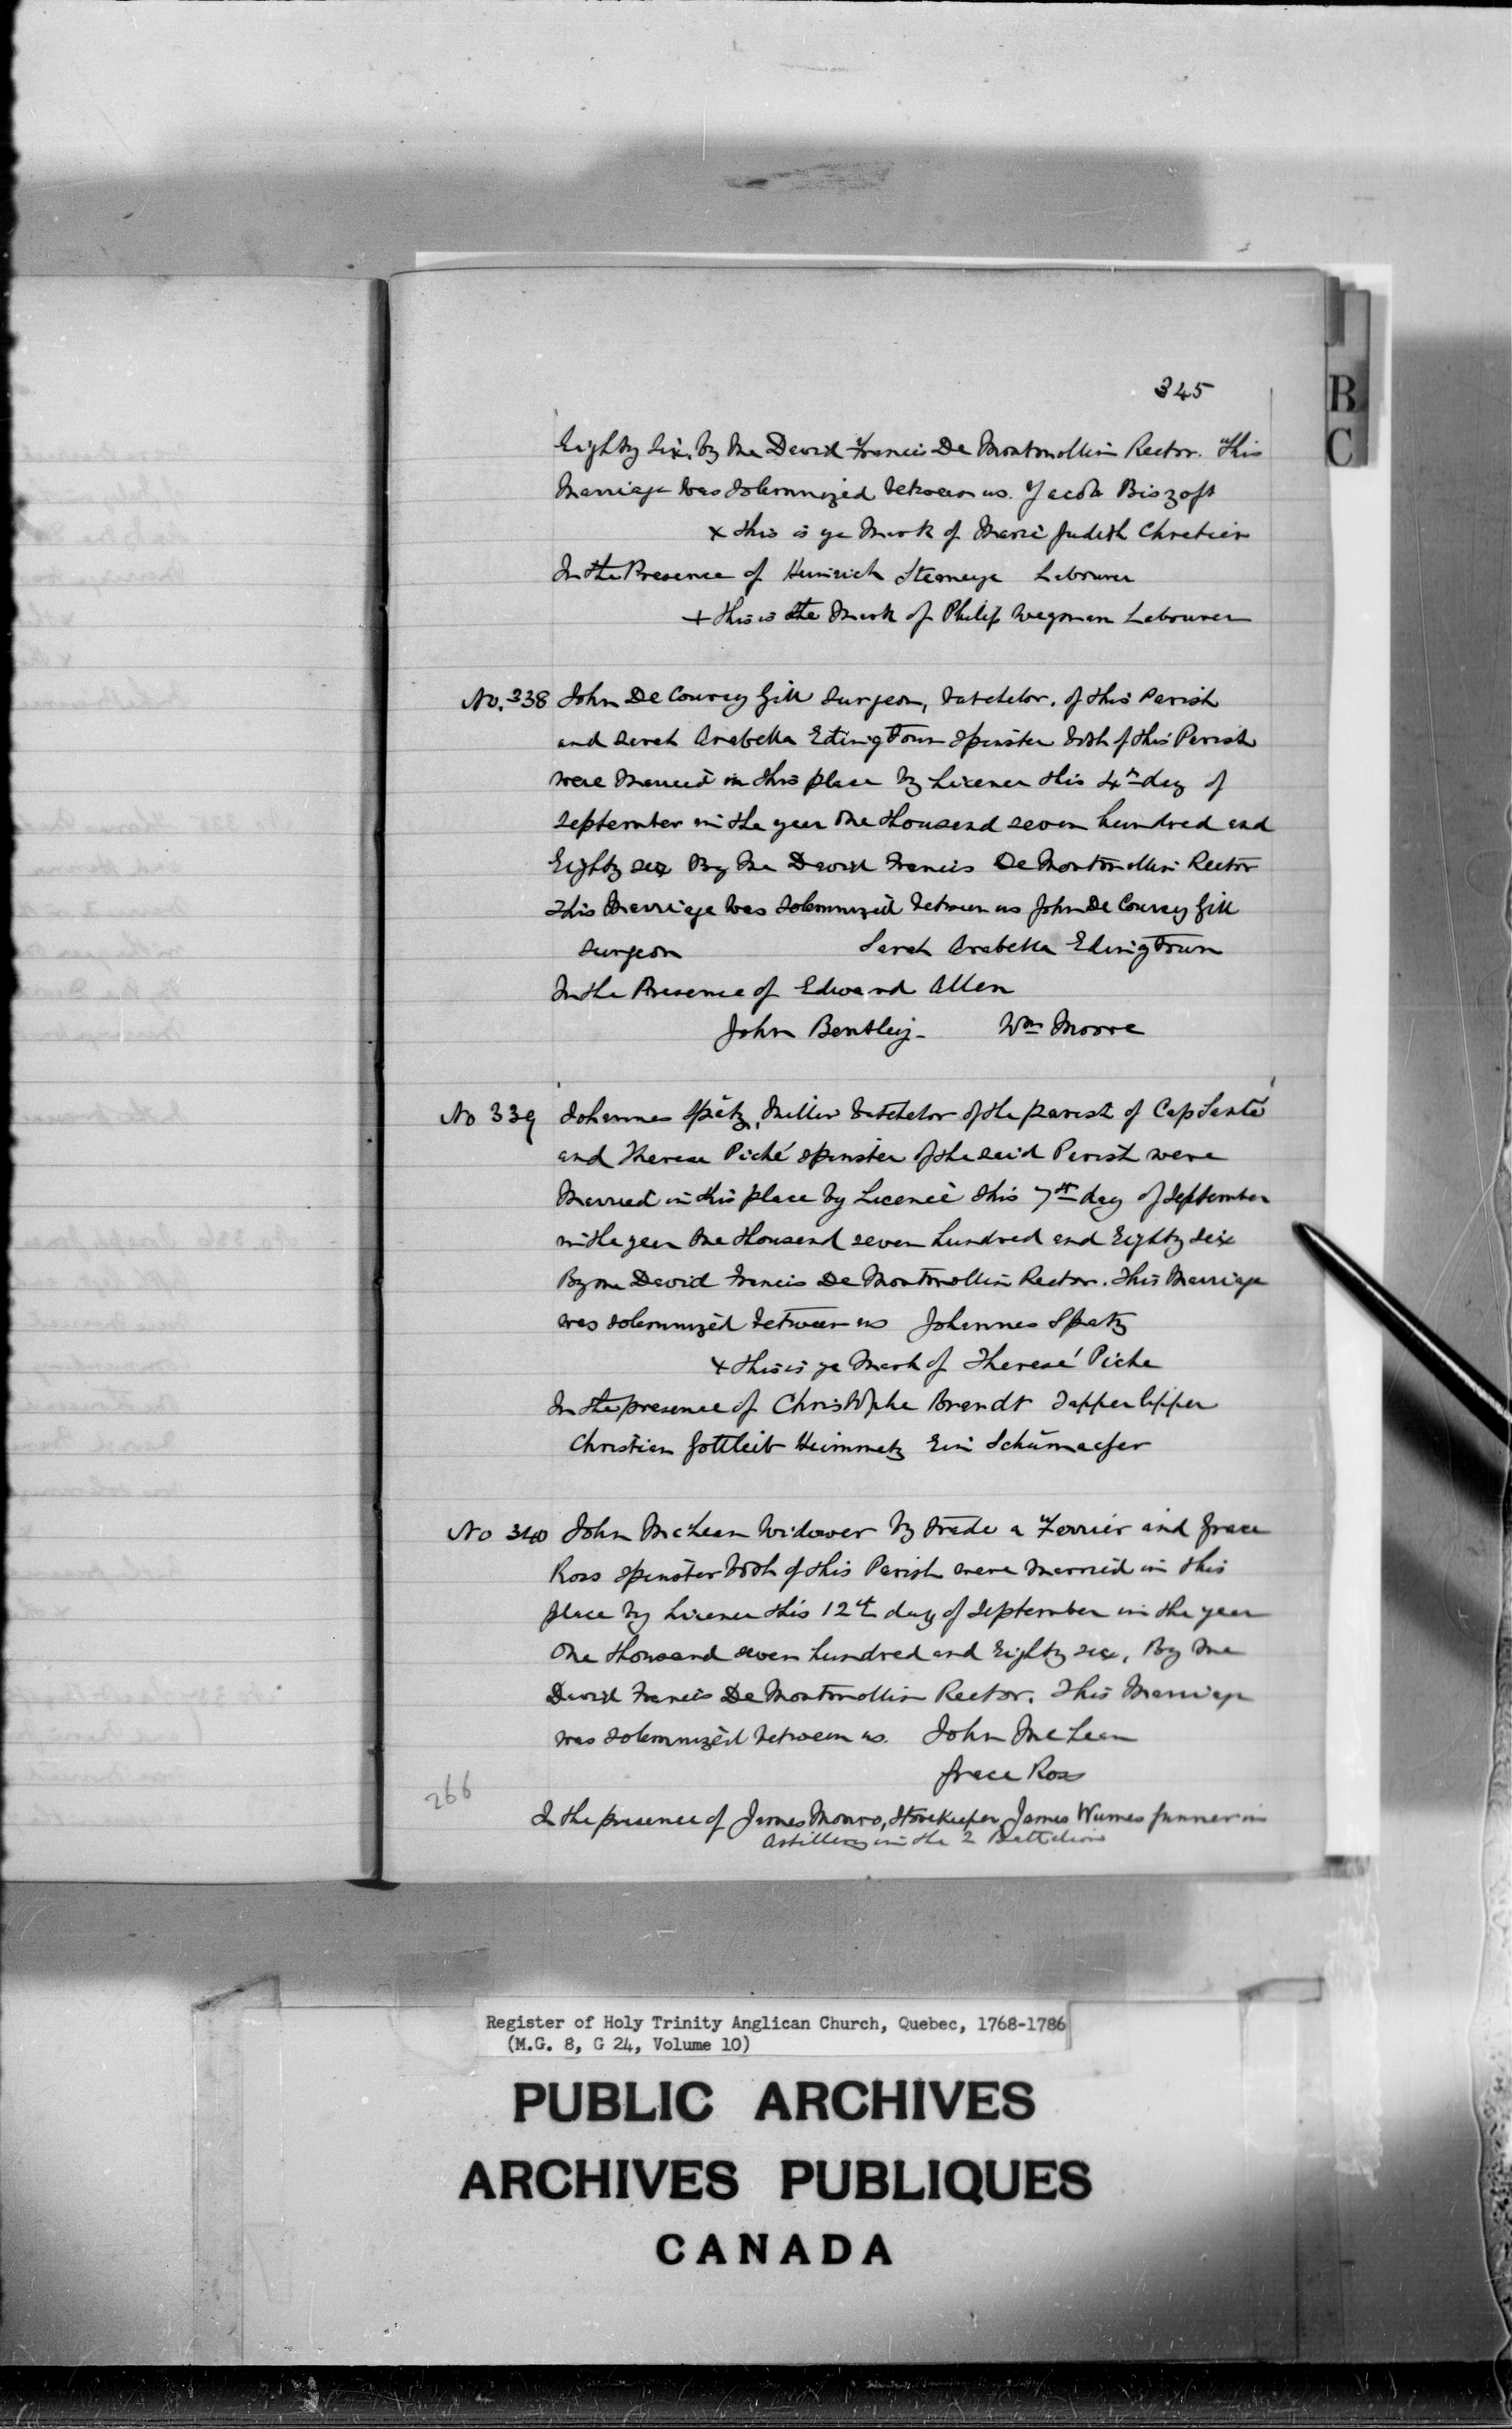 345
Eighty Six, by me David Francis De Montmollin Rector. This
Marriage was solemnized between us. Jacob Biszoft
x this is ye Mark of Marie Judith Chretien
In the Presence of Heinrich Stemeye Labourer
+ this is the Mark of Philip Wegman Labourer
No. 338 John De Courcy Gill Surgeon, Batchelor. of this Parish
and Sarah Arabella Edingtown Spinster both of this Parish
were Married in this place by Licence this 4th day of
September in the year One thousand seven hundred and
Eighty six By me David Francis De Montmollin Rector
This Marriage was Solemnized between us John De Courcy Gill
Surgeon Sarah Arabella Edingtown
In the Presence of Edward Allen
John Bentley- Wm Moore
No 339 Johannes Spätz, Miller Batchelor of the parish of Cap Santé
and Therese Piché Spinster of the said Parish were
Married in this place by Licence this 7th day of September
in the year One thousand seven hundred and Eighty six
By me David Francis De Montmollin Rector. This Marriage
was solemnized between us Johannes Spatz
x this is ye Mark of Theresé Piche
In the presence of Christophe Brandt
Christian Gottleib Heimmetz Ein Schümacher
No 340 John McLean Widower by trade a Ferrier and Grace
Ross Spinster both of this Parish were married in this
place by Licence this 12th day of September in the year
One thousand seven hundred and Eighty six, By me
David Francis De Montmollin Rector. This Marriage
was Solemnized between us. John McLean
Grace Ross
266
In the presence of James Monro, Storekeeper, James Wumes Gunner in
Artillery in the 2 Battalion
B
C
Register of Holy Trinity Anglican Church, Quebec, 1768-1786
(M.G. 8, G 24, Volume 10)
PUBLIC ARCHIVES
ARCHIVES PUBLIQUES
CANADA